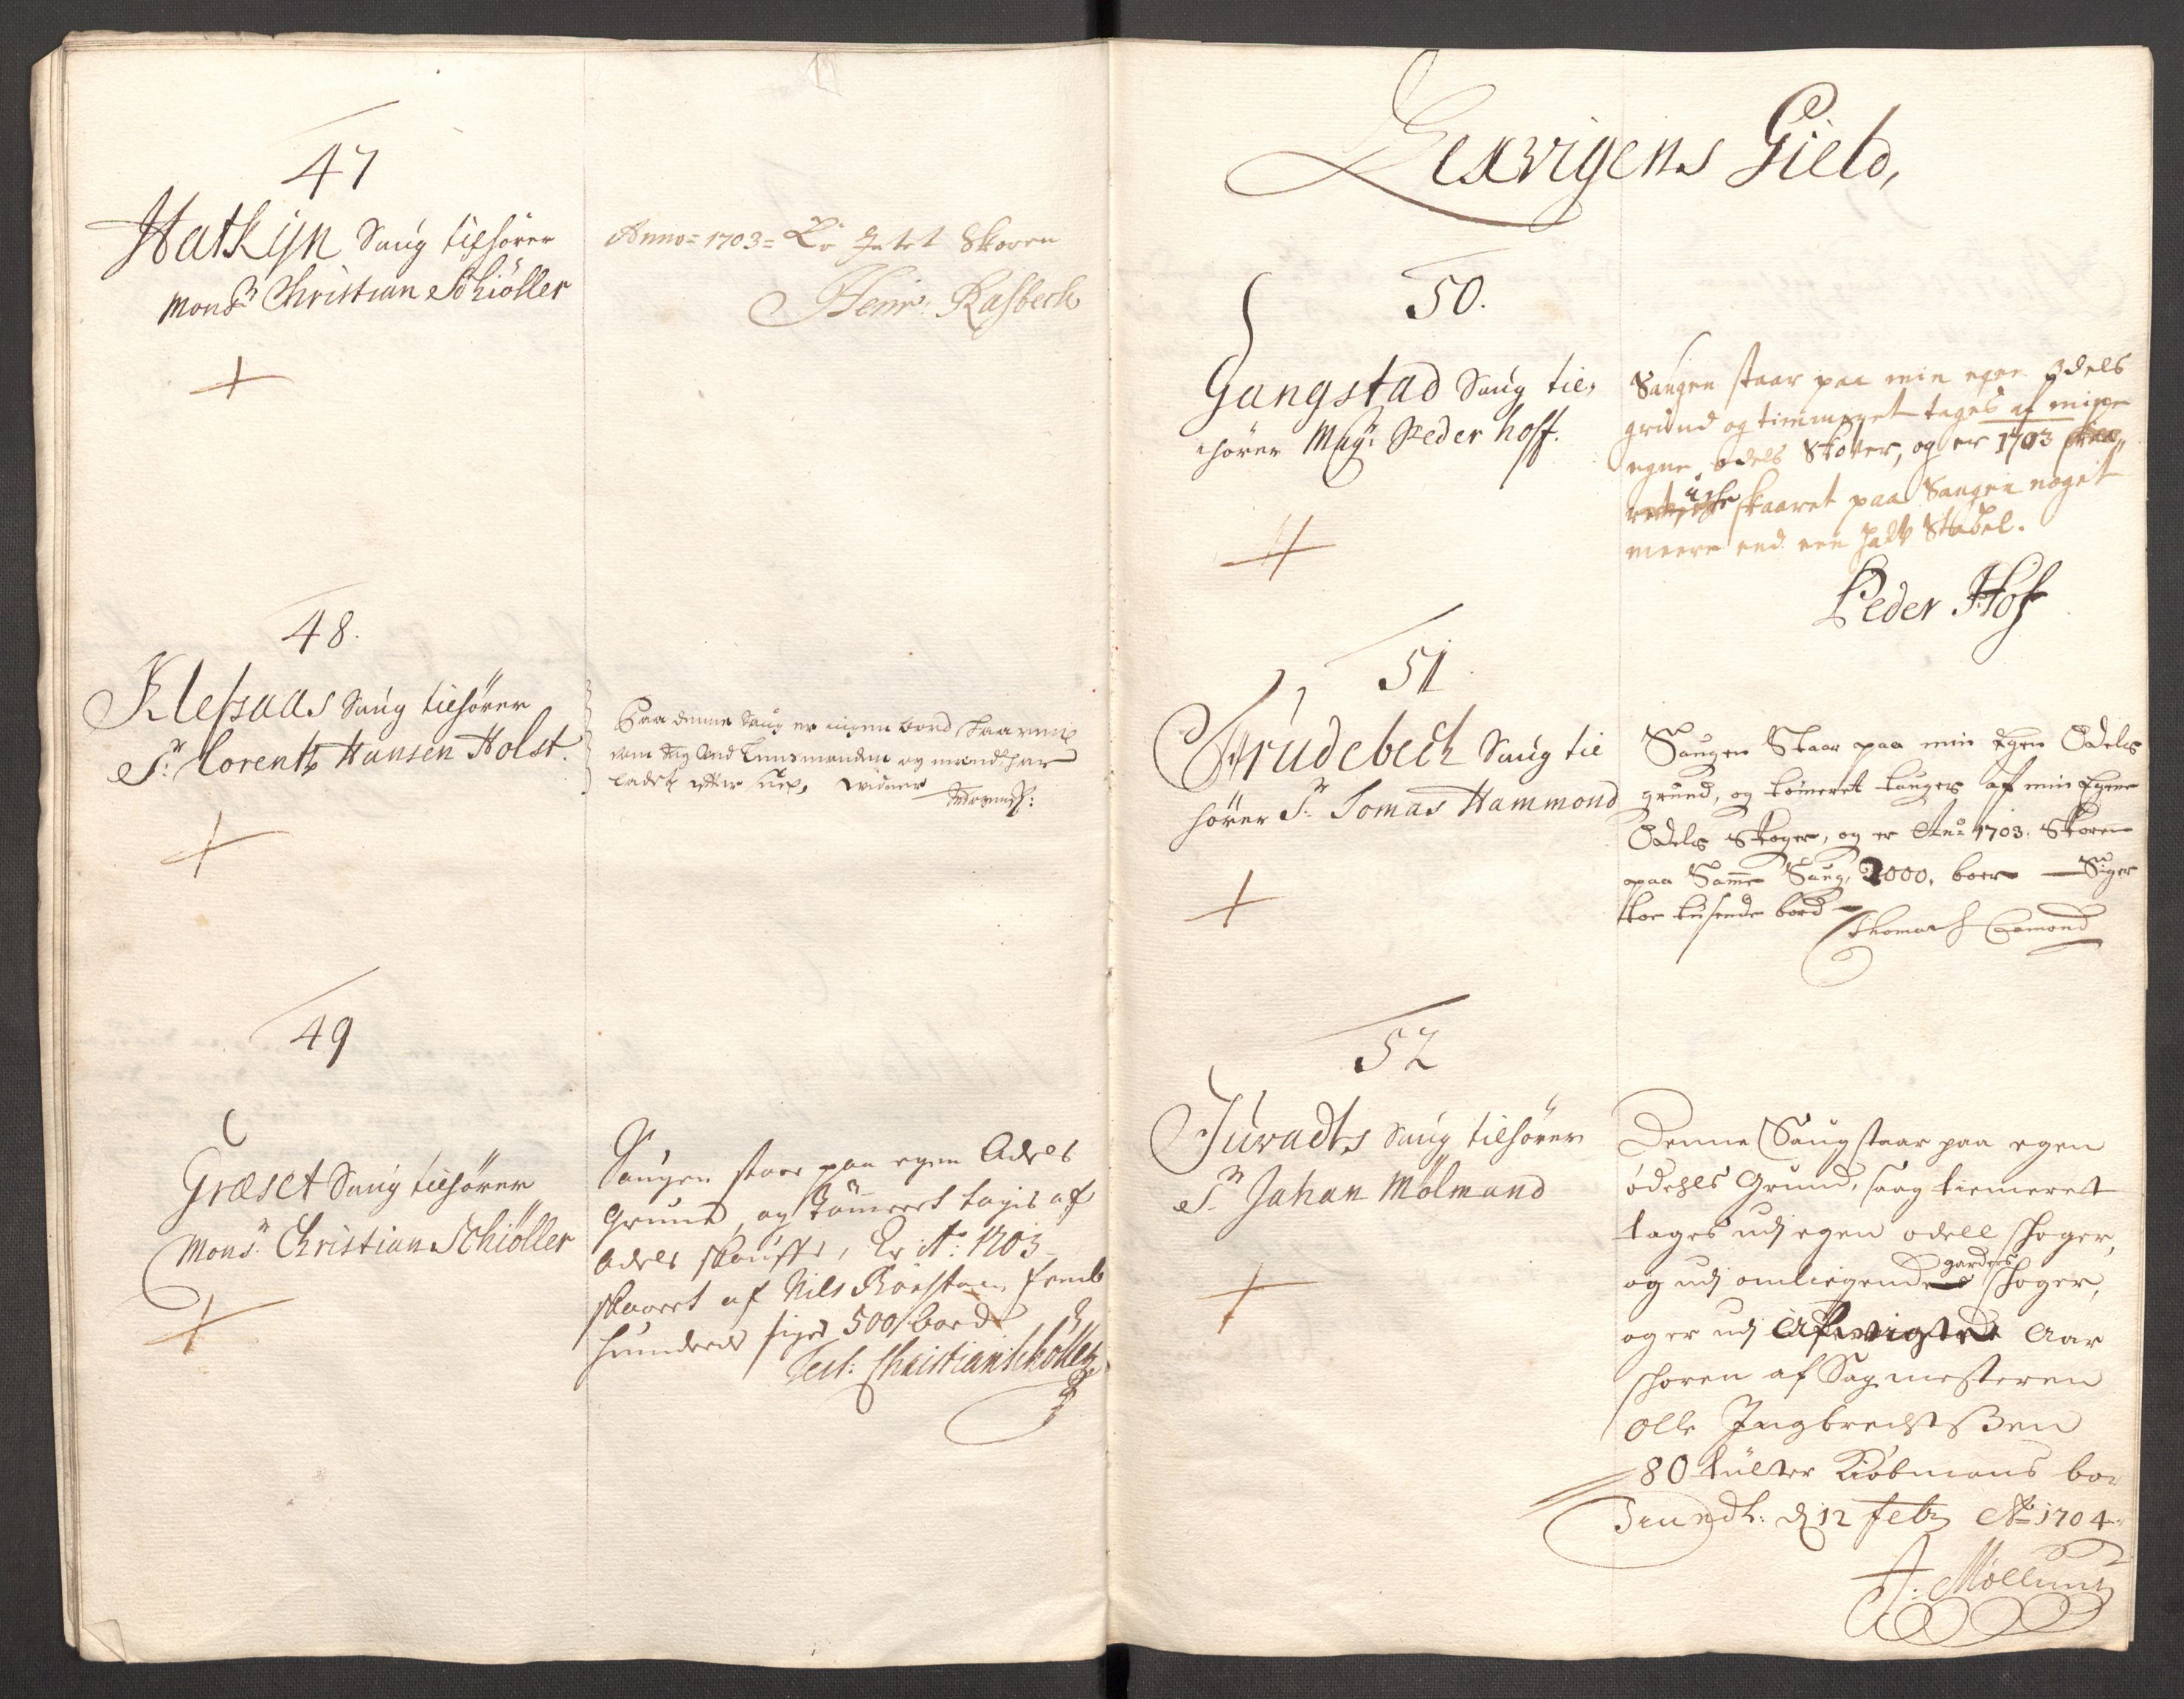 47
Hatkijn Saug tilhører
Mons.r Christian Schiøller
Anno = 1703 = Er Intet Skoren
Henr: Kasbech
48.
Klefsaas Saug tilhører
S.r Lorentz Hansen Holst.
Paa denne Saug er ingen bord skaaren
49
Græset Saug tilhører
Mons.r Christian Schiøller
Saugen staar paa egen Odels
Grund, og Tømmeret tagis af
Odels skouffve, Er A.o 1703
skaaret af Nils femb
hundrede siger 500 bord
Test: Christian Schøller
Lexvigens Gield,
50.
Gangstad Saug til,
hører Mag: Peder Hoff.
Saugen staar paa min egen Odels
grund og timmeret tages af mine
egne odels Skover, og er 1703
icke skaaret paa Saugen noget
meere end een halv Stabel.
Peder Hof
51
Frudebech Saug til
hører S.r Tomas Hammond
Saugen Staar paa min Egen Odels
grund, og tømeret tauges af min Egene
Odels Skoger, og er Ano 1703. Skoren
paa Samme Saug, 2000, boer — Siger
toe tusende bord
Thomas Hamond
52
Juvadts Saug tilhører
S.r Jahan Mølmand
Denne Saug staar paa egen
odehls Grund, saag tiemeret
tages udj egen odell skoger,
og udj omliegende gardens skoger,
og er udj Afvigte Aar
skoren af Sagmesteren
Olle Ingbrechtsen
80 tülter Kiøbmans bor
Trundh: d 12 Feb A.o 1704
J: Møllman